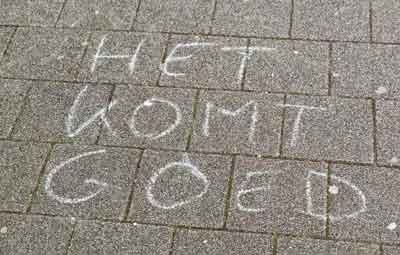 HET
KOMT
GOED